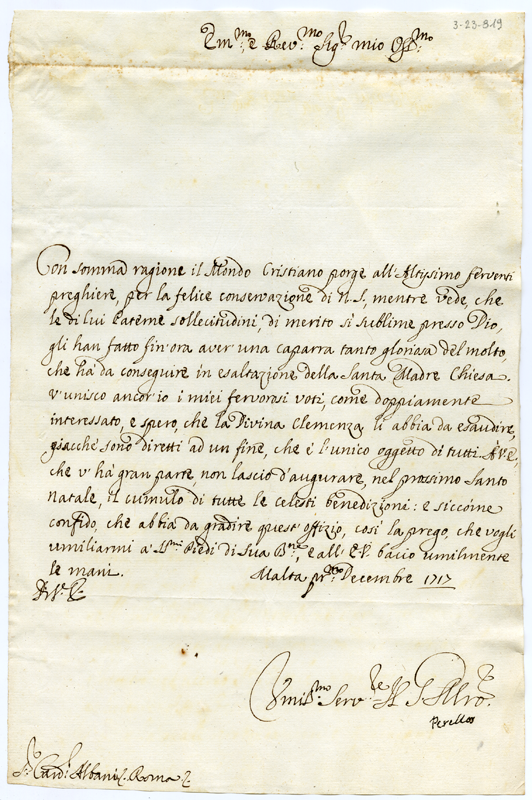 3-23-819
Em.mo e Rev.mo Sig.r mio Oss.mo
Con somma ragione il Mondo Cristiano porge all'Altissimo ferventi
preghiere, per la felice conservazione di N.S, mentre vede, che
le di lui Paterne sollecitudini, di merito sì sublime presso Dio,
gli han fatto fin'ora aver una caparra tanto gloriosa del molto,
che ha da conseguire in esaltazione della Santa Madre Chiesa.
V'unisco ancor'io i miei fervorosi voti, come doppiamente
interessato, e spero, che la Divina Clemenza li abbia da esaudire,
giacche sono diretti ad un fine, che è l'unico oggetto di tutti. A V.E,
che v'hà gran parte, non lascio d'augurare, nel prossimo Santo
natale, il cumulo di tutte le celesti benedizioni: e siccome
confido, che abbia da gradire quest'offizio, così la prego, che vogli
umiliarmi a' SS.mi Piedi di Sua B.ne, e all'E.V. bacio umilmente
le mani. Malta p.mo Decembre 1717
Umiliss.mo Serv.re
Perellos
S.r Card.l Albani. Roma